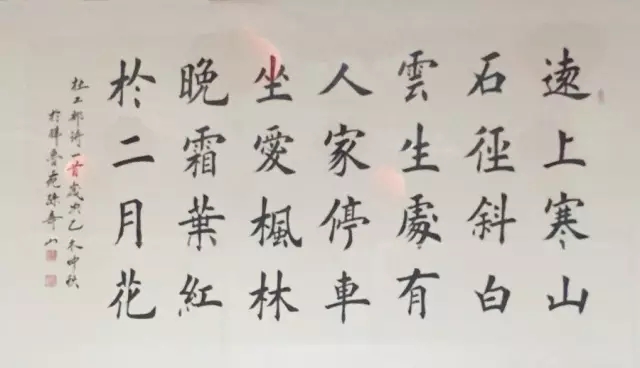 遠上寒山
石徑斜白
雲生處有
人家停車
坐愛楓林
晚霜葉紅
於二月花
杜工部诗一首歲次乙未仲秋
於驊魯苑孫壽山